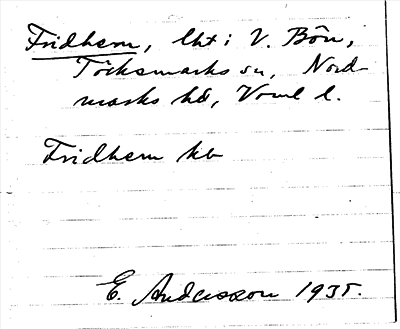 Fridhem, lht i V. Bön,
Töcksmarks sn, Nord-
marks hd, Vrml l.
Fridhem kb
E. Andersson 1935.